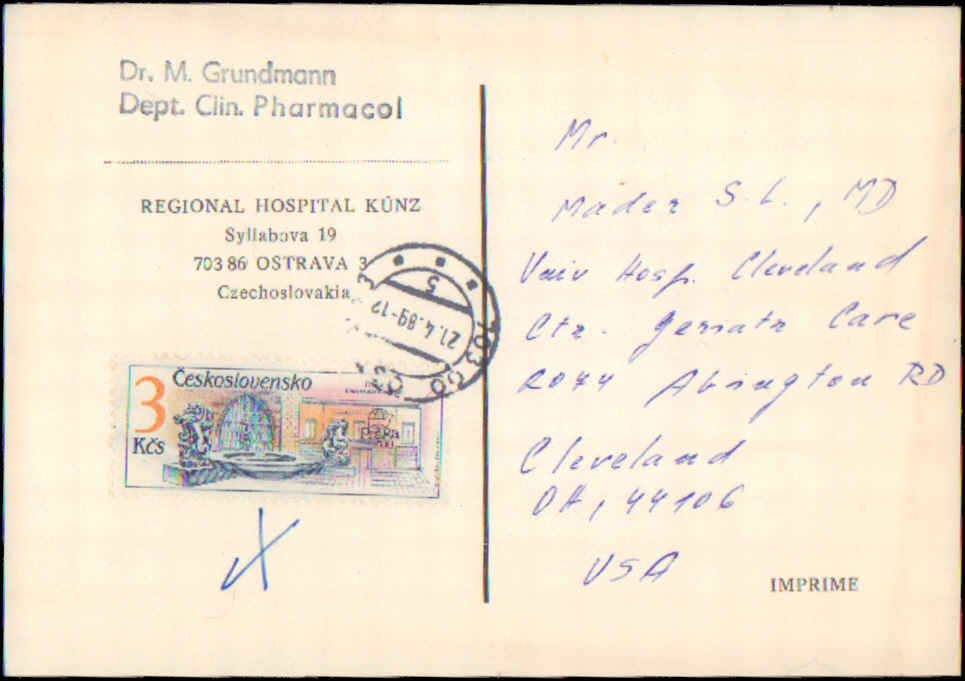 Dr. M. Grundmann
Dept. Clin. Pharmacol
REGIONAL HOSPITAL KÚNZ
Syllabova 19
703 86 OSTRAVA 3
Czechoslovakia
5
21.4.89-12
703 00
3
Kčs
Československo
Mr.
Mäder S. L., MD
Univ Hosp. Cleveland
Ctr. Geriatr Care
2074 Abington RD
Cleveland
OH, 44106
USA
IMPRIME